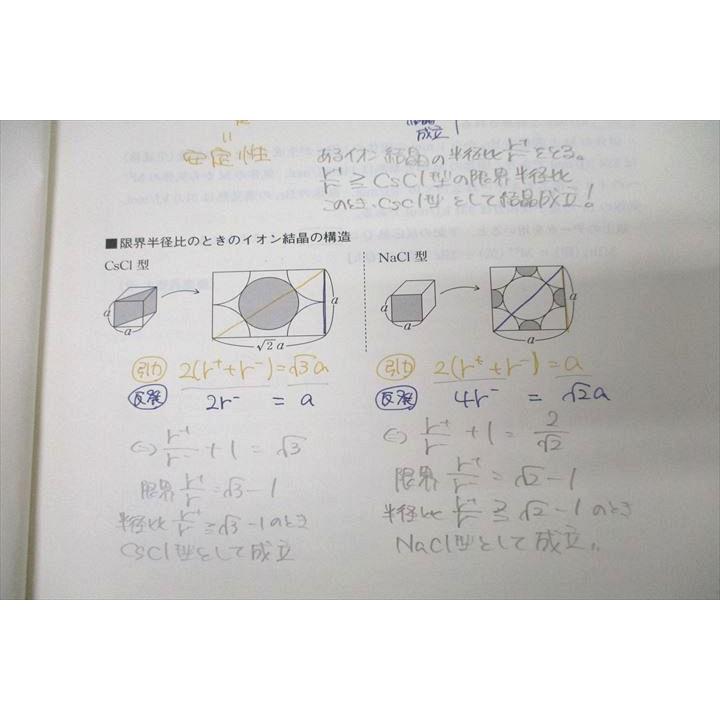 安定性
成立
あるイオン結晶の半径比 r⁺/r⁻ をとる。
r⁺/r⁻ ≧ CsCl型の限界半径比
このとき、CsCl型として結晶成立!
■限界半径比のときのイオン結晶の構造
CsCl 型
a
a
√2 a
a
引力 2(r⁺+r⁻)=√3a
反発 2r⁻ = a
⇔ r⁺/r⁻ + 1 = √3
限界 r⁺/r⁻ = √3-1
半径比 r⁺/r⁻ ≧ √3-1 のとき
CsCl型として成立
NaCl 型
a
a
a
a
引力 2(r⁺+r⁻) = a
反発 4r⁻ = √2a
⇔ r⁺/r⁻ + 1 = 2/√2
限界 r⁺/r⁻ = √2-1
半径比 r⁺/r⁻ ≧ √2-1 のとき
NaCl型として成立。